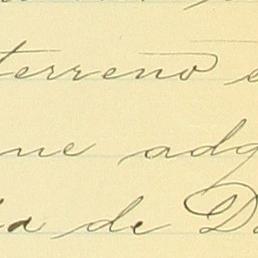 terreno e
ne adq
ia de D